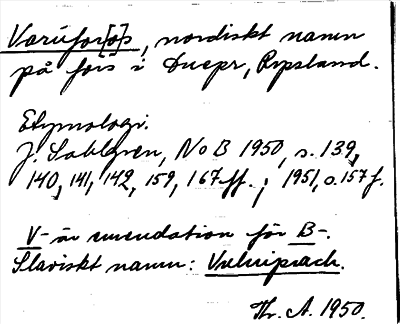 Varufor[o]s, nordiskt namn
på fors i Dnepr, Ryssland.
Etymologi.
J. Sahlgren, NoB 1950, s. 139,
140, 141, 142, 159, 167 ff.; 1951, s. 157 f.
V- är emendation för B-.
Slaviskt namn: Vulniprach.
Th. A. 1950.